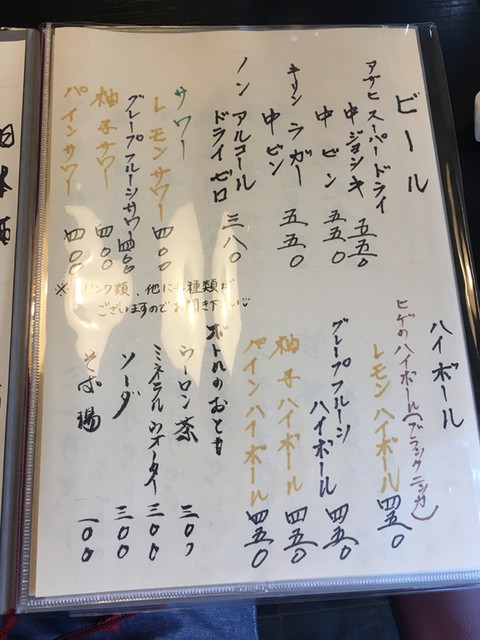 ビール
アサヒスーパードライ
中ジョッキ 五五〇
中ビン 五五〇
キリンラガー
中ビン 五五〇
ノンアルコール
ドライゼロ 三八〇
サワー
レモンサワー 四〇〇
グレープフルーツサワー 四〇〇
柚子サワー 四〇〇
パインサワー 四〇〇
※ドリンク類、他にも種類が
ございますのでお聞き下さい
ハイボール
ヒゲのハイボール(ブラックニッカ)
レモンハイボール 四五〇
グレープフルーツ
ハイボール 四五〇
柚子ハイボール 四五〇
パインハイボール 四五〇
ボトルのおとも
ウーロン茶 三〇〇
ミネラルウオーター 三〇〇
ソーダ 三〇〇
そば湯 一〇〇
日本酒